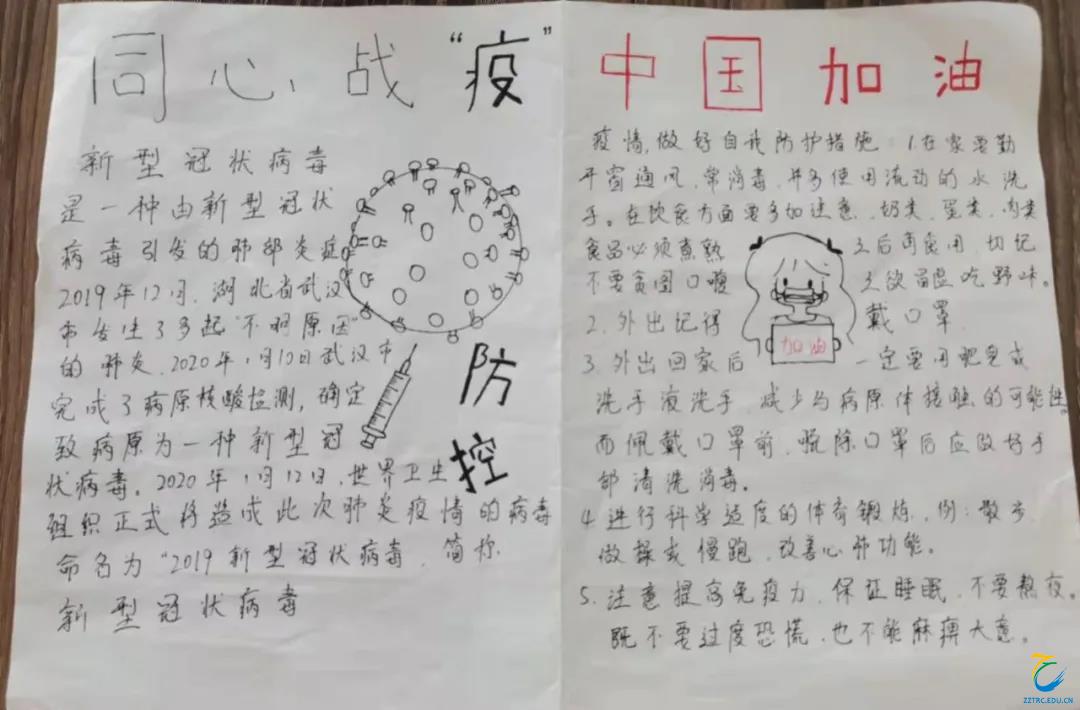 同心战“疫”
新型冠状病毒
是一种由新型冠状
病毒引发的肺部炎症
2019年12月,湖北省武汉
市发生了多起“不明原因”
的肺炎.2020年1月10日武汉市
完成了病原核酸检测,确定
致病原为一种新型冠
状病毒。2020年1月12日,世界卫生
组织正式将造成此次肺炎疫情的病毒
命名为“2019新型冠状病毒,简称
新型冠状病毒
防
控
中国加油
疫情,做好自我防护措施:1.在家要勤
开窗通风,常消毒,并多使用流动的水洗
手。在饮食方面要多加注意,奶类、蛋类、肉类
食品必须煮熟之后再食用,切记
不要贪图口腹之欲冒险吃野味。
2.外出记得戴口罩
加油
3.外出回家后一定要用肥皂或
洗手液洗手,减少与病原体接触的可能性
而佩戴口罩前,脱除口罩后应做好手
部清洗消毒。
4.进行科学适度的体育锻炼,例:散步,
做操或慢跑,改善心肺功能。
5.注意提高免疫力,保证睡眠,不要熬夜。
既不要过度恐慌,也不能麻痹大意。
ZZTRC.EDU.CN